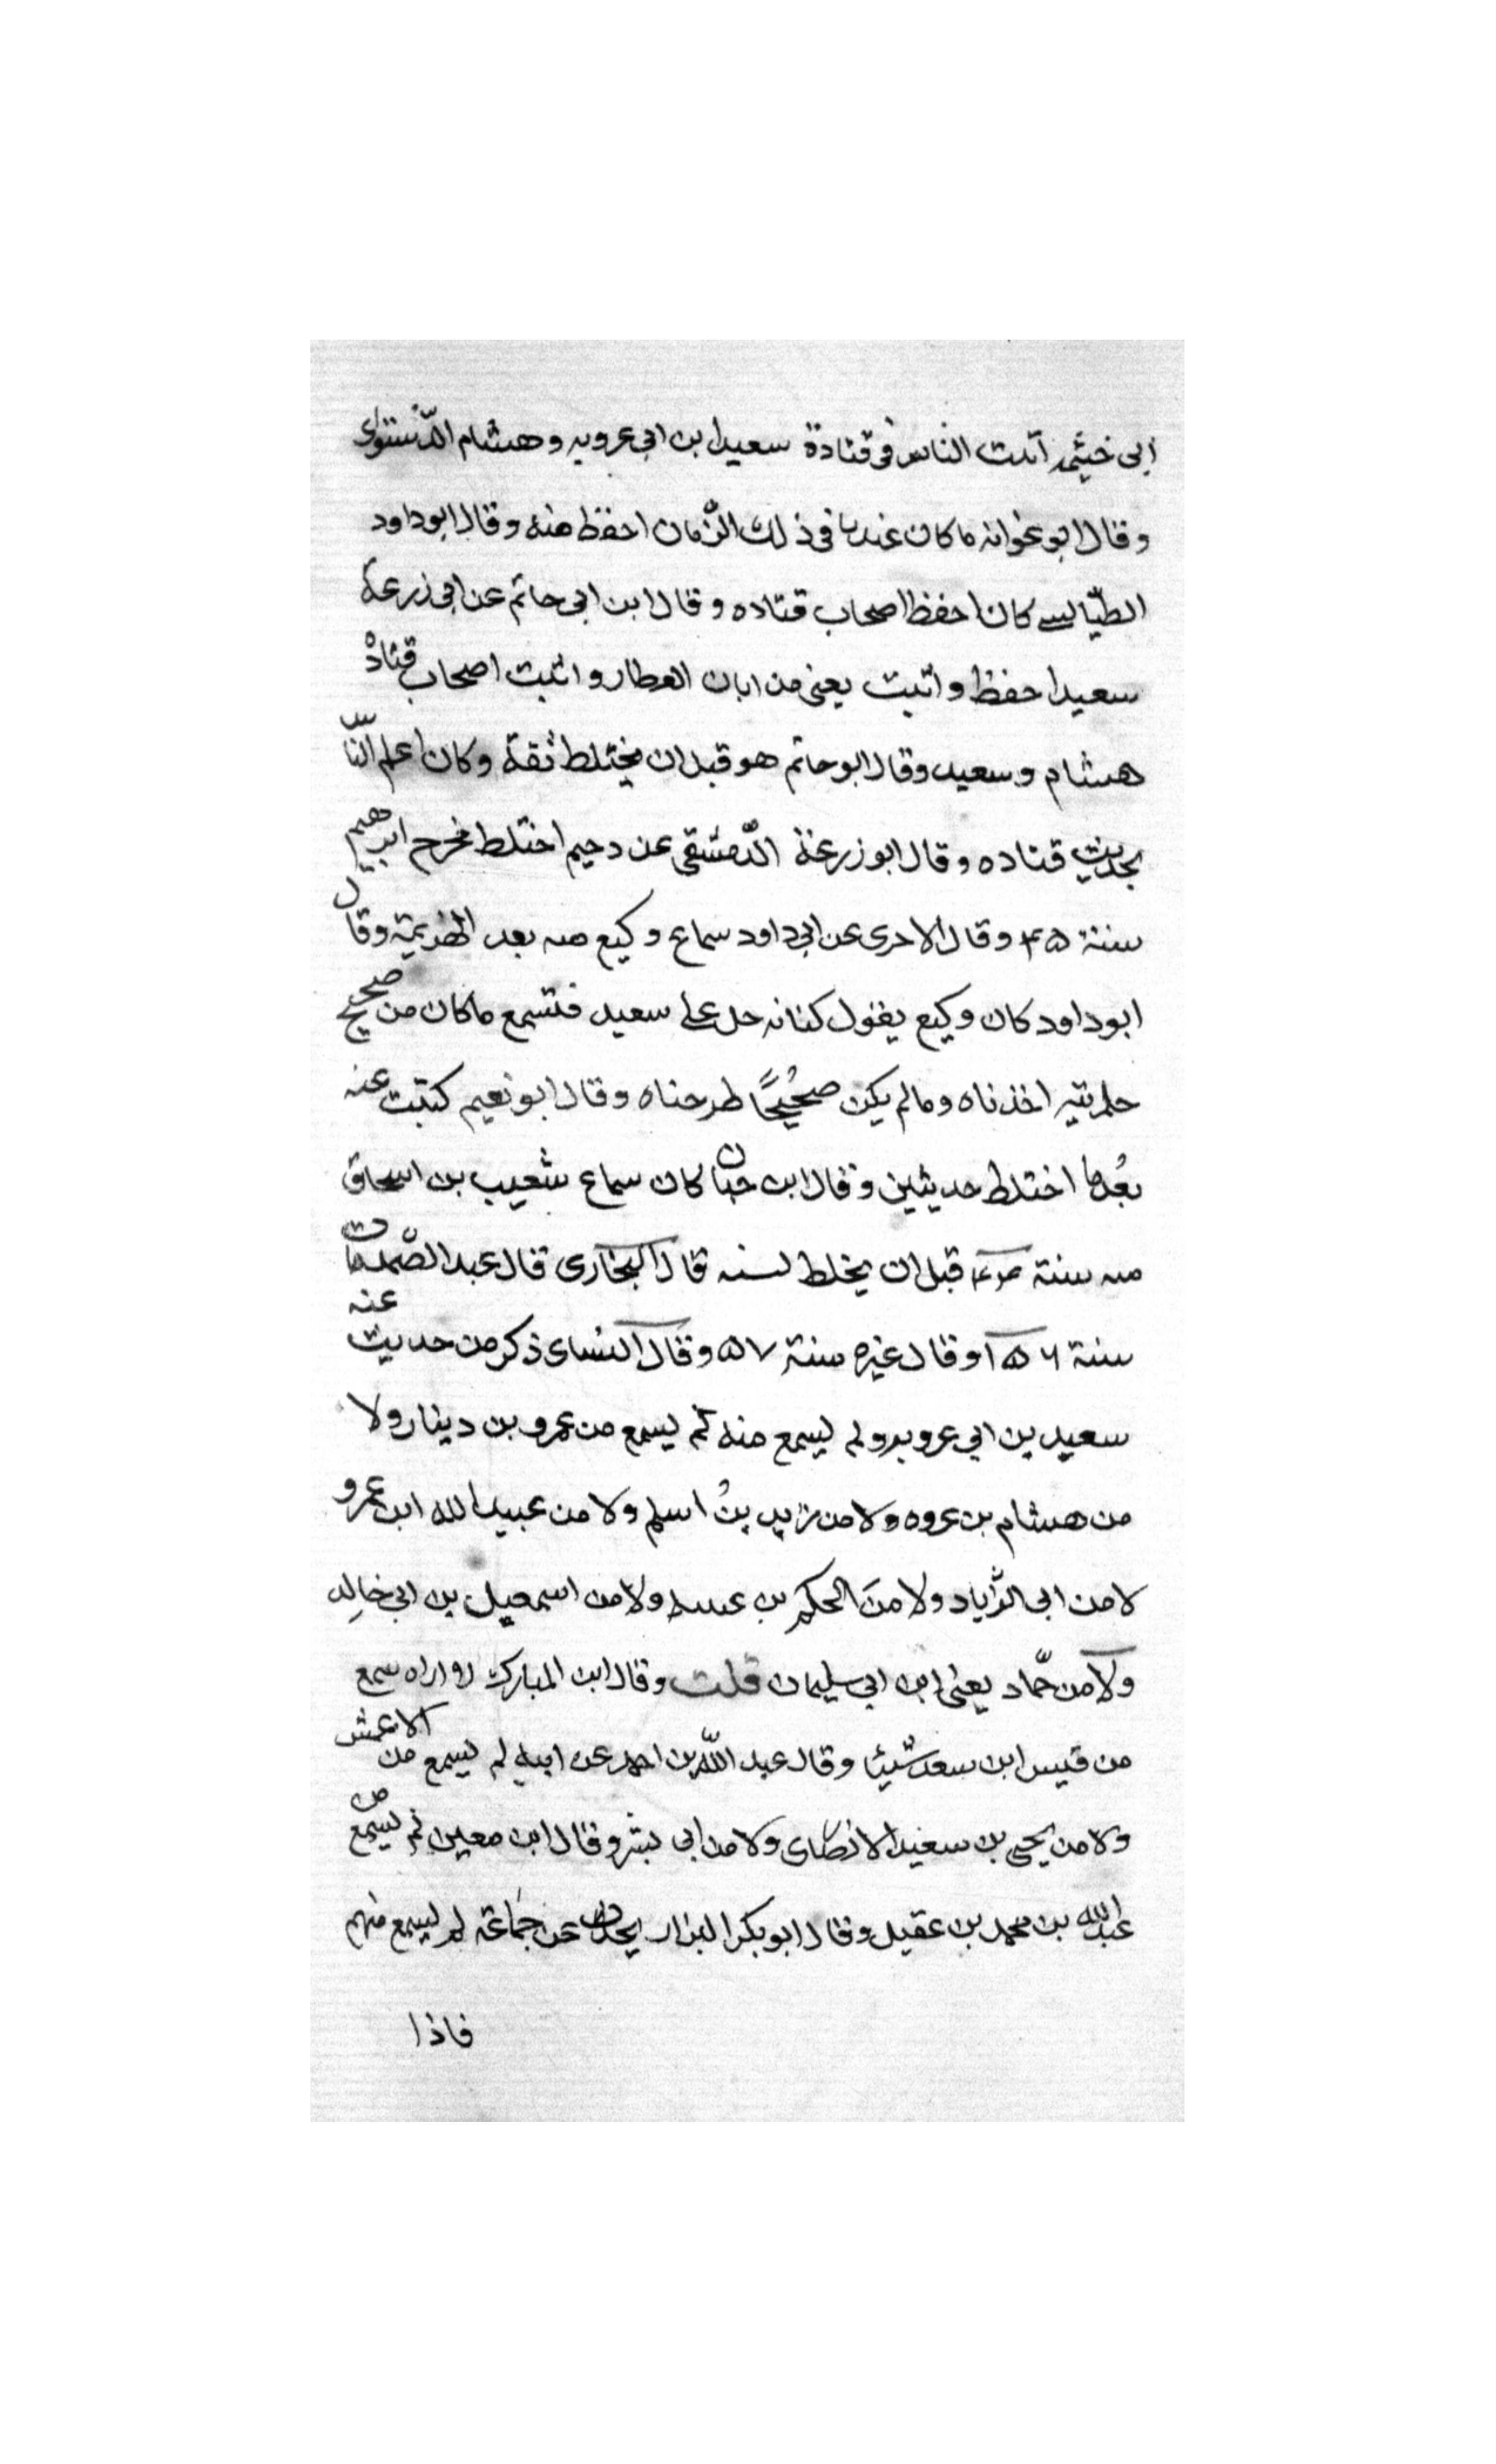 ابى خيثمه اثبت الناس فى قتادة سعيد ابن ابى عروبه وهشام الدّستوائى
وقال ابو عوانه ماكان عندنا فى ذلك الزّمان احفظ منه وقال ابو داود
الطيّالسى كان احفظ اصحاب قتاده وقال ابن ابى حاتم عن ابى زرعة
سعيد احفظ واثبت يعنى من ابان العطار واثبت اصحاب قتادة
هشام وسعيد وقال ابو حاتم هو قبل ان يختلط ثقة وكان اعلم النّاس
بحديث قتاده وقال ابو زرعة الدّمشقى عن دحيم اختلط مخرج ابرهيم
سنة ۴۵ وقال الاجرى عن ابى داود سماع وكيع منه بعد الهزيمة وقال
ابو داود كان وكيع يقول كنا ندخل على سعيد فنسمع ماكان من صحيح
حديثه اخذناه ومالم يكن صحيحًا طرحناه وقال ابو نعيم كتبت عنه
بعدما اختلط حديثين وقال ابن حبان كان سماع شعيب بن اسحاق
منه سنة ۴۴ قبل ان يختلط لسنه قال البخارى قال عبد الصّمد مات
سنة ۱۵۶ وقال غيره سنة ۵۷ وقال النسائى ذكر من حديث عنه
سعيد بن ابى عروبه ولم يسمع منه لم يسمع من عمرو بن دينار ولا
من هشام بن عروه ولا من زيد بن اسلم ولا من عبيد الله ابن عمرو
لا من ابى الزّياد ولا من الحكم بن عتيبه ولا من اسمعيل بن ابى خالد
ولا من حمّاد يعنى ابن ابى سليمان قلت وقال ابن المبارك اراه سمع
من قيس ابن سعد شيئا وقال عبد اللّه بن احمد عن ابيه لم يسمع من الاعمش
ولا من يحيى بن سعيد الانصارى ولا من ابى بشر وقال ابن معين لم يسمع من
عبد الله بن محمد بن عقيل وقال ابو بكر البزار يحدث عن جماعة لم يسمع منهم
فاذا